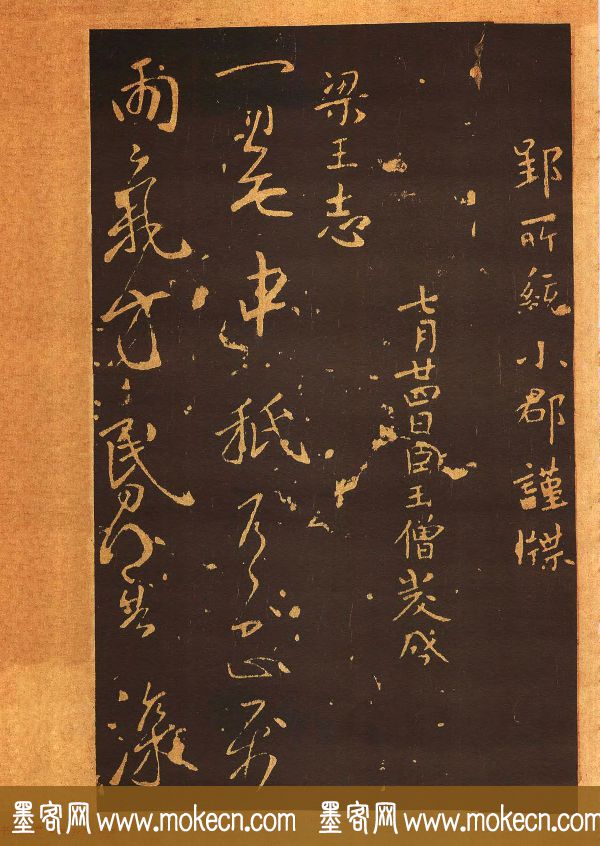 郢所統小郡謹牒
七月廿四日臣王僧虔
梁王志
一日無申秖
雨氣方昏得告深
墨客网 www.mokecn.com 墨客网 www.mokecn.com